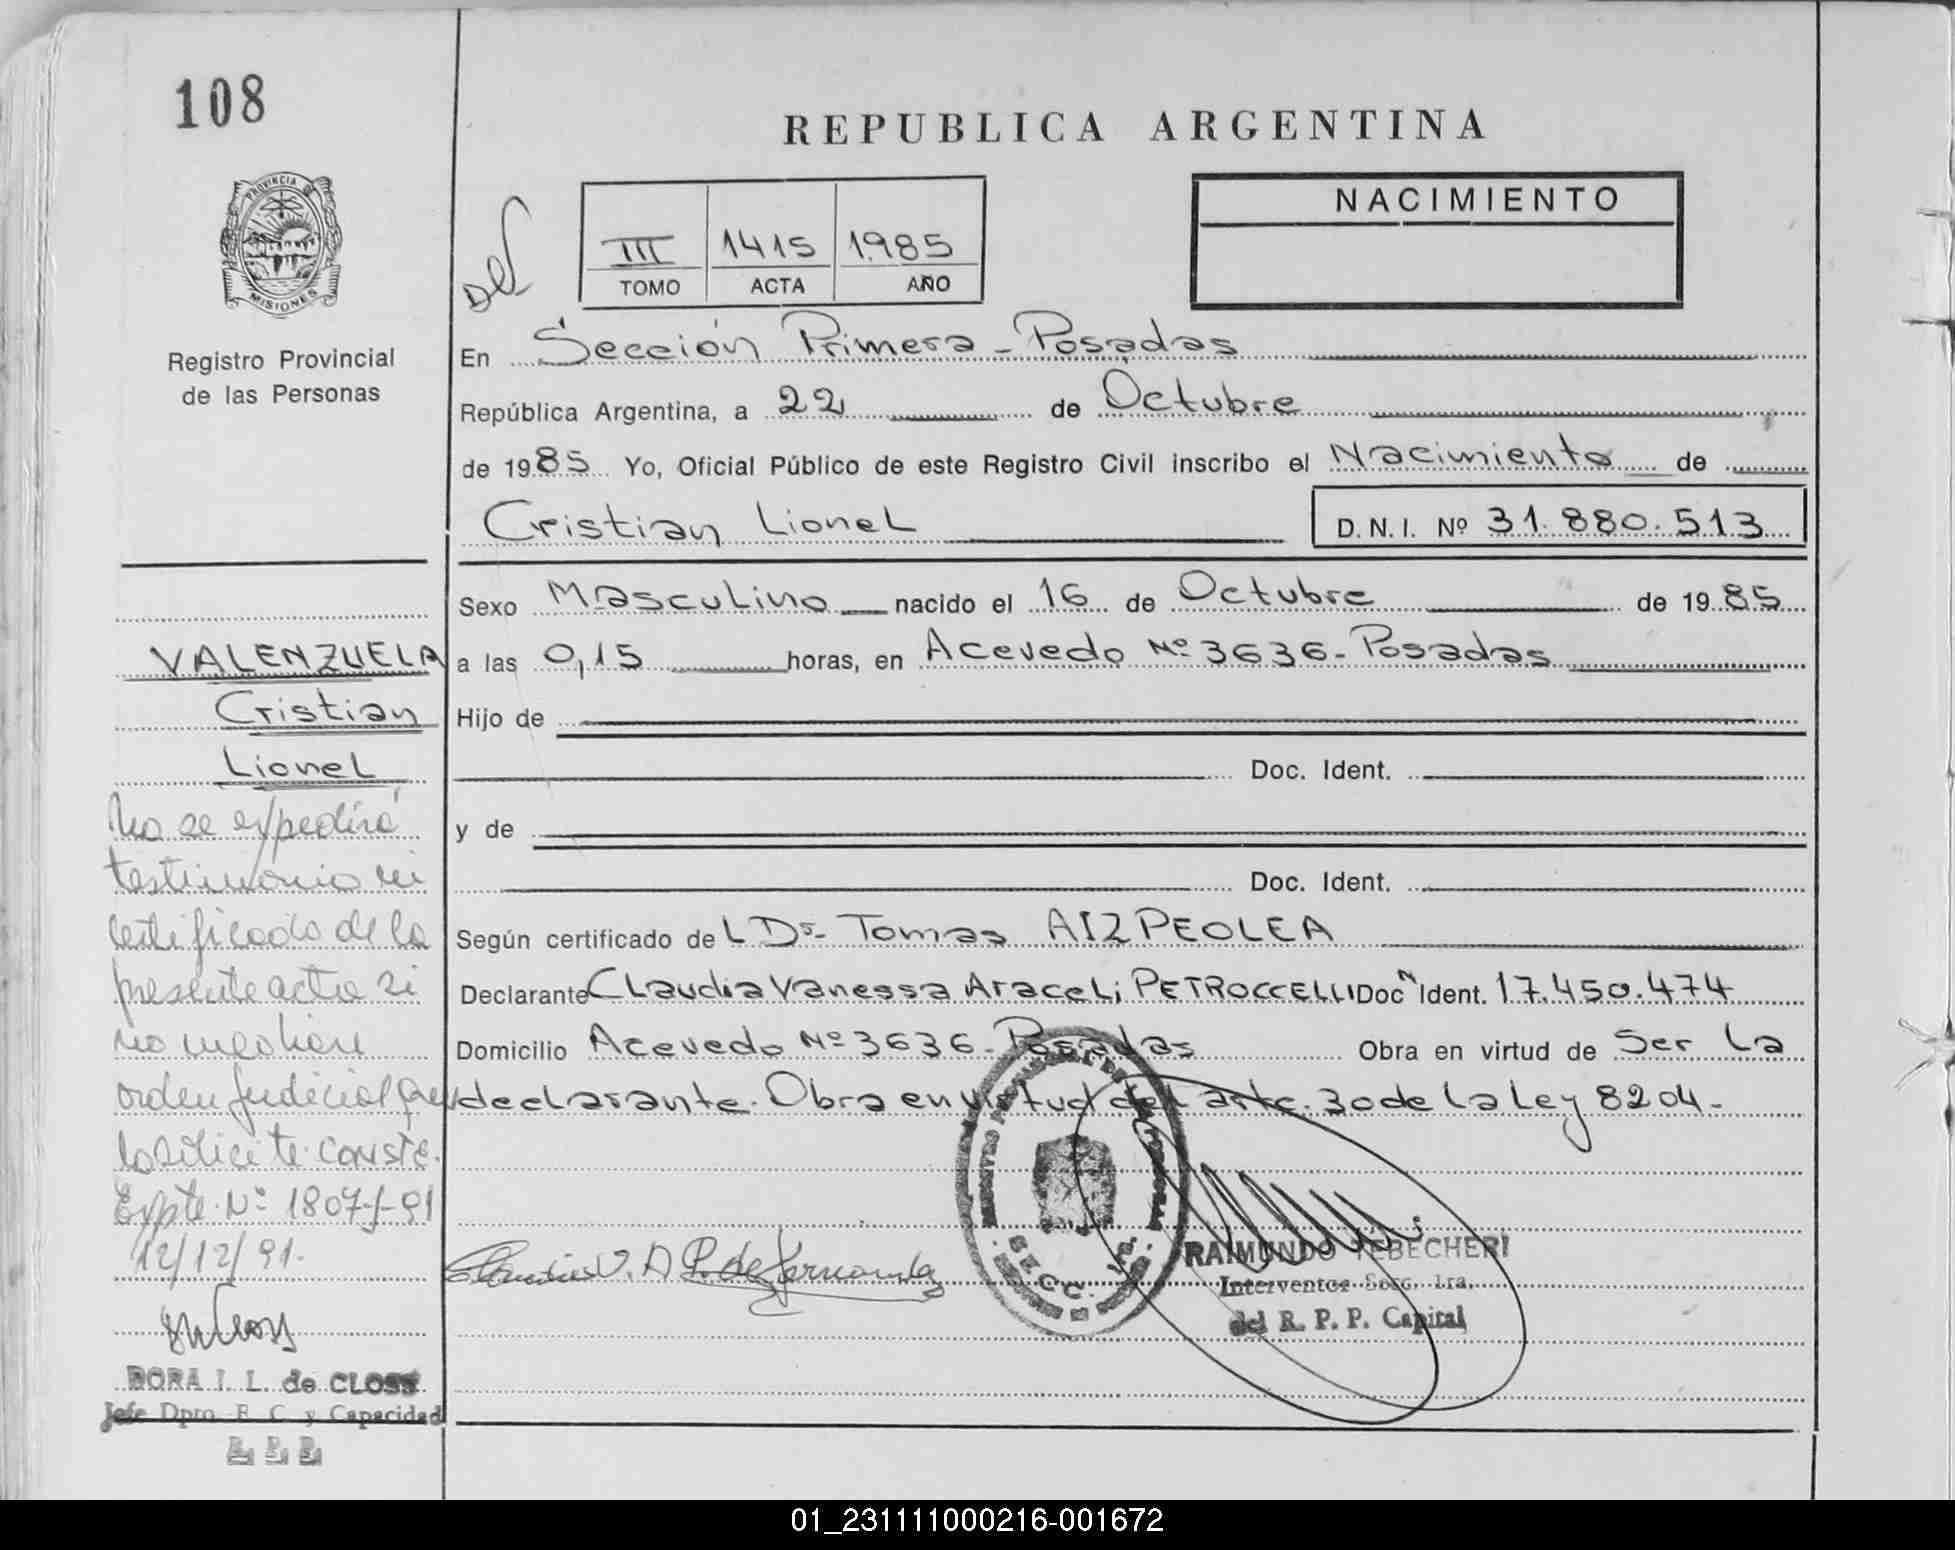 108
REPUBLICA ARGENTINA
PROVINCIA DE
MISIONES
Registro Provincial
de las Personas
Del
III 1415 1985
TOMO ACTA AÑO
NACIMIENTO
En Sección Primera - Posadas
República Argentina, a 22 de Octubre
de 1985 Yo, Oficial Público de este Registro Civil inscribo el Nacimiento de
Cristian Lionel D.N.I. Nº 31.880.513
Sexo Masculino nacido el 16 de Octubre de 1985
a las 0,15 horas, en Acevedo Nº 3636 - Posadas
Hijo de
Doc. Ident.
y de
Doc. Ident.
Según certificado de L Dr. Tomas AIZPEOLEA
Declarante Claudia Vanessa Araceli PETROCCELLI Doc. Ident. 17.450.474
Domicilio Acevedo Nº 3636 - Posadas Obra en virtud de Ser la
declarante. Obra en virtud del artc. 30 de la Ley 8204 -
VALENZUELA
Cristian
Lionel
No se expedirá
testimonio ni
certificado de la
presente acta si
no mediare
orden judicial que
lo solicite. conste.
Expte. Nº 1807-J-91
12/12/91.
DORA I. L. de CLOSS
Jefe Dpto. E. C. y Capacidad
SECC. 1ra.
RAIMUNDO TEBECHERI
Interventor Secc. 1ra.
del R. P. P. Capital
01_231111000216-001672